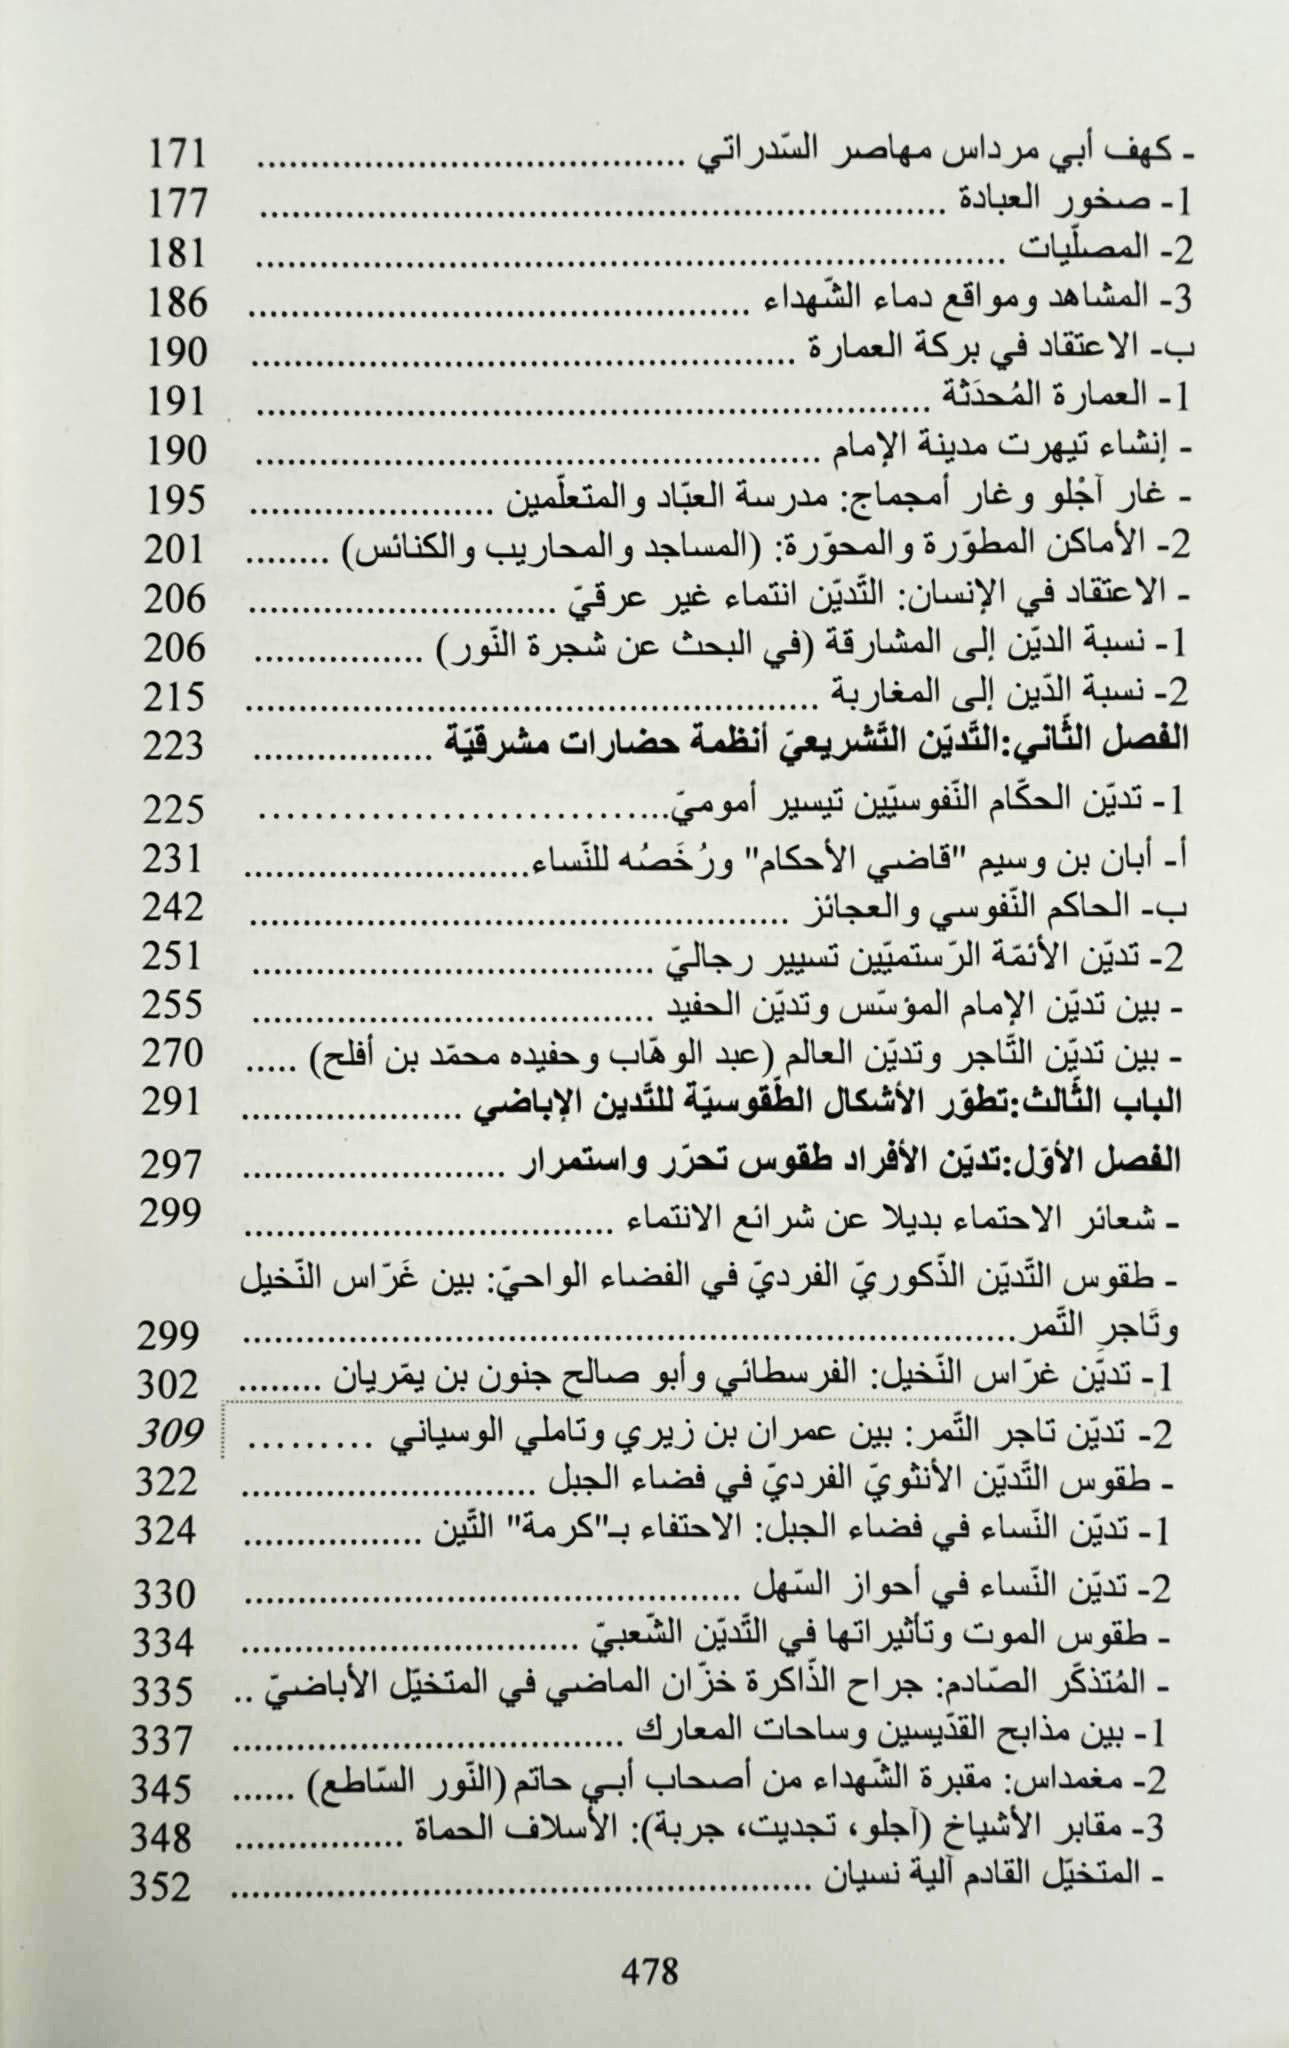 - كهف أبي مرداس مهاصر السّدراتي ........................................ 171
1- صخور العبادة ................................................................ 177
2- المصلّيات ...................................................................... 181
3- المشاهد ومواقع دماء الشّهداء ............................................... 186
ب- الاعتقاد في بركة العمارة ................................................... 190
1- العمارة المُحدَثة ............................................................... 191
- إنشاء تيهرت مدينة الإمام ..................................................... 190
- غار آجْلو وغار أمجماج: مدرسة العبّاد والمتعلّمين ....................... 195
2- الأماكن المطوّرة والمحوّرة: (المساجد والمحاريب والكنائس) ........ 201
- الاعتقاد في الإنسان: التّديّن انتماء غير عرقيّ ............................. 206
1- نسبة الديّن إلى المشارقة (في البحث عن شجرة النّور) ................ 206
2- نسبة الدّين إلى المغاربة ...................................................... 215
الفصل الثّاني:التّديّن التّشريعيّ أنظمة حضارات مشرقيّة ................. 223
1- تديّن الحكّام النّفوسيّين تيسير أموميّ................................ 225
أ- أبان بن وسيم "قاضي الأحكام" ورُخَصُه للنّساء........................... 231
ب- الحاكم النّفوسي والعجائز .................................................... 242
2- تديّن الأئمّة الرّستميّين تسيير رجاليّ ...................................... 251
- بين تديّن الإمام المؤسّس وتديّن الحفيد ...................................... 255
- بين تديّن التّاجر وتديّن العالم (عبد الوهّاب وحفيده محمّد بن أفلح) ..... 270
الباب الثّالث:تطوّر الأشكال الطّقوسيّة للتّدين الإباضي ..................... 291
الفصل الأوّل:تديّن الأفراد طقوس تحرّر واستمرار ......................... 297
- شعائر الاحتماء بديلا عن شرائع الانتماء ................................... 299
- طقوس التّديّن الذّكوريّ الفرديّ في الفضاء الواحيّ: بين غَرّاس النّخيل
وتَاجرِ التَّمر......................................................................... 299
1- تديّن غرّاس النّخيل: الفرسطائي وأبو صالح جنون بن يمّريان ........ 302
2- تديّن تاجر التّمر: بين عمران بن زيري وتاملي الوسياني ......... 309
- طقوس التّديّن الأنثويّ الفرديّ في فضاء الجبل ............................ 322
1- تديّن النّساء في فضاء الجبل: الاحتفاء بـ"كرمة" التّين ................. 324
2- تديّن النّساء في أحواز السّهل ............................................... 330
- طقوس الموت وتأثيراتها في التّديّن الشّعبيّ ................................ 334
- المُتذكّر الصّادم: جراح الذّاكرة خزّان الماضي في المتخيّل الأباضيّ .. 335
1- بين مذابح القدّيسين وساحات المعارك ..................................... 337
2- مغمداس: مقبرة الشّهداء من أصحاب أبي حاتم (النّور السّاطع) ...... 345
3- مقابر الأشياخ (آجلو، تجديت، جربة): الأسلاف الحماة ................ 348
- المتخيّل القادم آلية نسيان ...................................................... 352
478